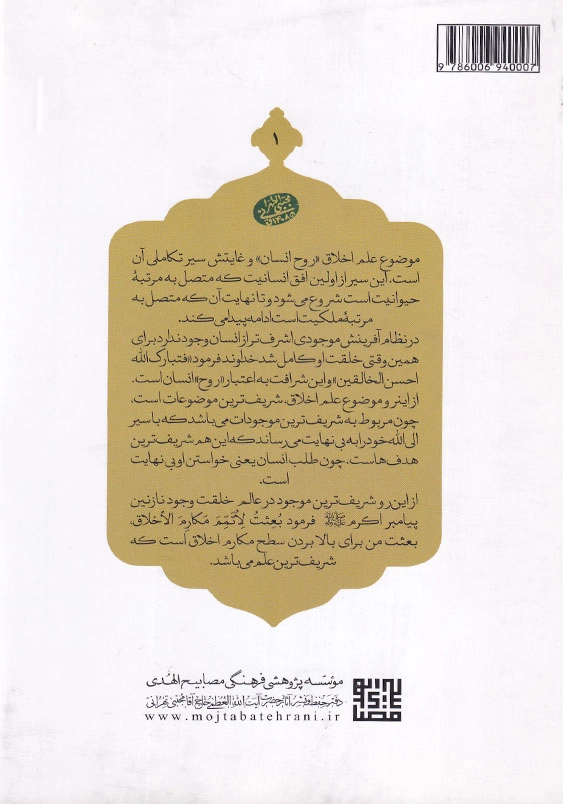 9 786006 940007
۱
موضوع علم اخلاق «روح انسان» و غایتش سیر تکاملی آن
است. این سیر از اولین افق انسانیت که متصل به مرتبهٔ
حیوانیت است شروع می‌شود و تا نهایت آن که متصل به
مرتبهٔ ملکیت است ادامه پیدا می‌کند.
در نظام آفرینش موجودی اشرف‌تر از انسان وجود ندارد برای
همین وقتی خلقت او کامل شد خداوند فرمود «فتبارک الله
احسن الخالقین» و این شرافت به اعتبار «روح» انسان است.
از این رو موضوع علم اخلاق، شریف‌ترین موضوعات است،
چون مربوط به شریف‌ترین موجودات می‌باشد که با سیر
الی الله خود را به بی نهایت می‌رساند که این هم شریف‌ترین
هدف‌هاست، چون طلب انسان یعنی خواستن او بی نهایت
است.
از این رو شریف‌ترین موجود در عالم خلقت وجود نازنین
پیامبر اکرم ﷺ فرمود بُعِثتُ لِأُتَمِّمَ مَکارِمَ الأخلاق،
بعثت من برای بالا بردن سطح مکارم اخلاق است که
شریف‌ترین علم می‌باشد.
مؤسسه پژوهشی فرهنگی مصابیح الهدی
دفتر حفظ و نشر آثار حضرت آیت الله العظمی حاج آقا مجتبی تهرانی
www.mojtabatehrani.ir